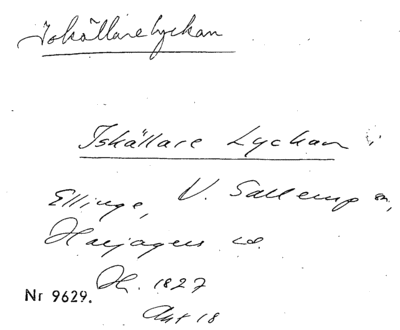 Iskällarelyckan
Iskällare Lyckan i
Ellinge, V. Sallerup sn,
Harjagers hd.
Nr 9629. Hr. 1827
Akt 18